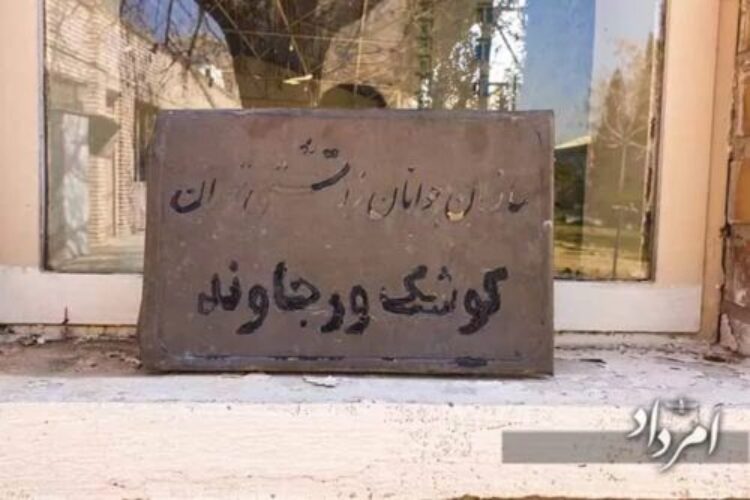 سازمان جوانان زرتشتی تهران
کوشک ورجاوند
امرداد